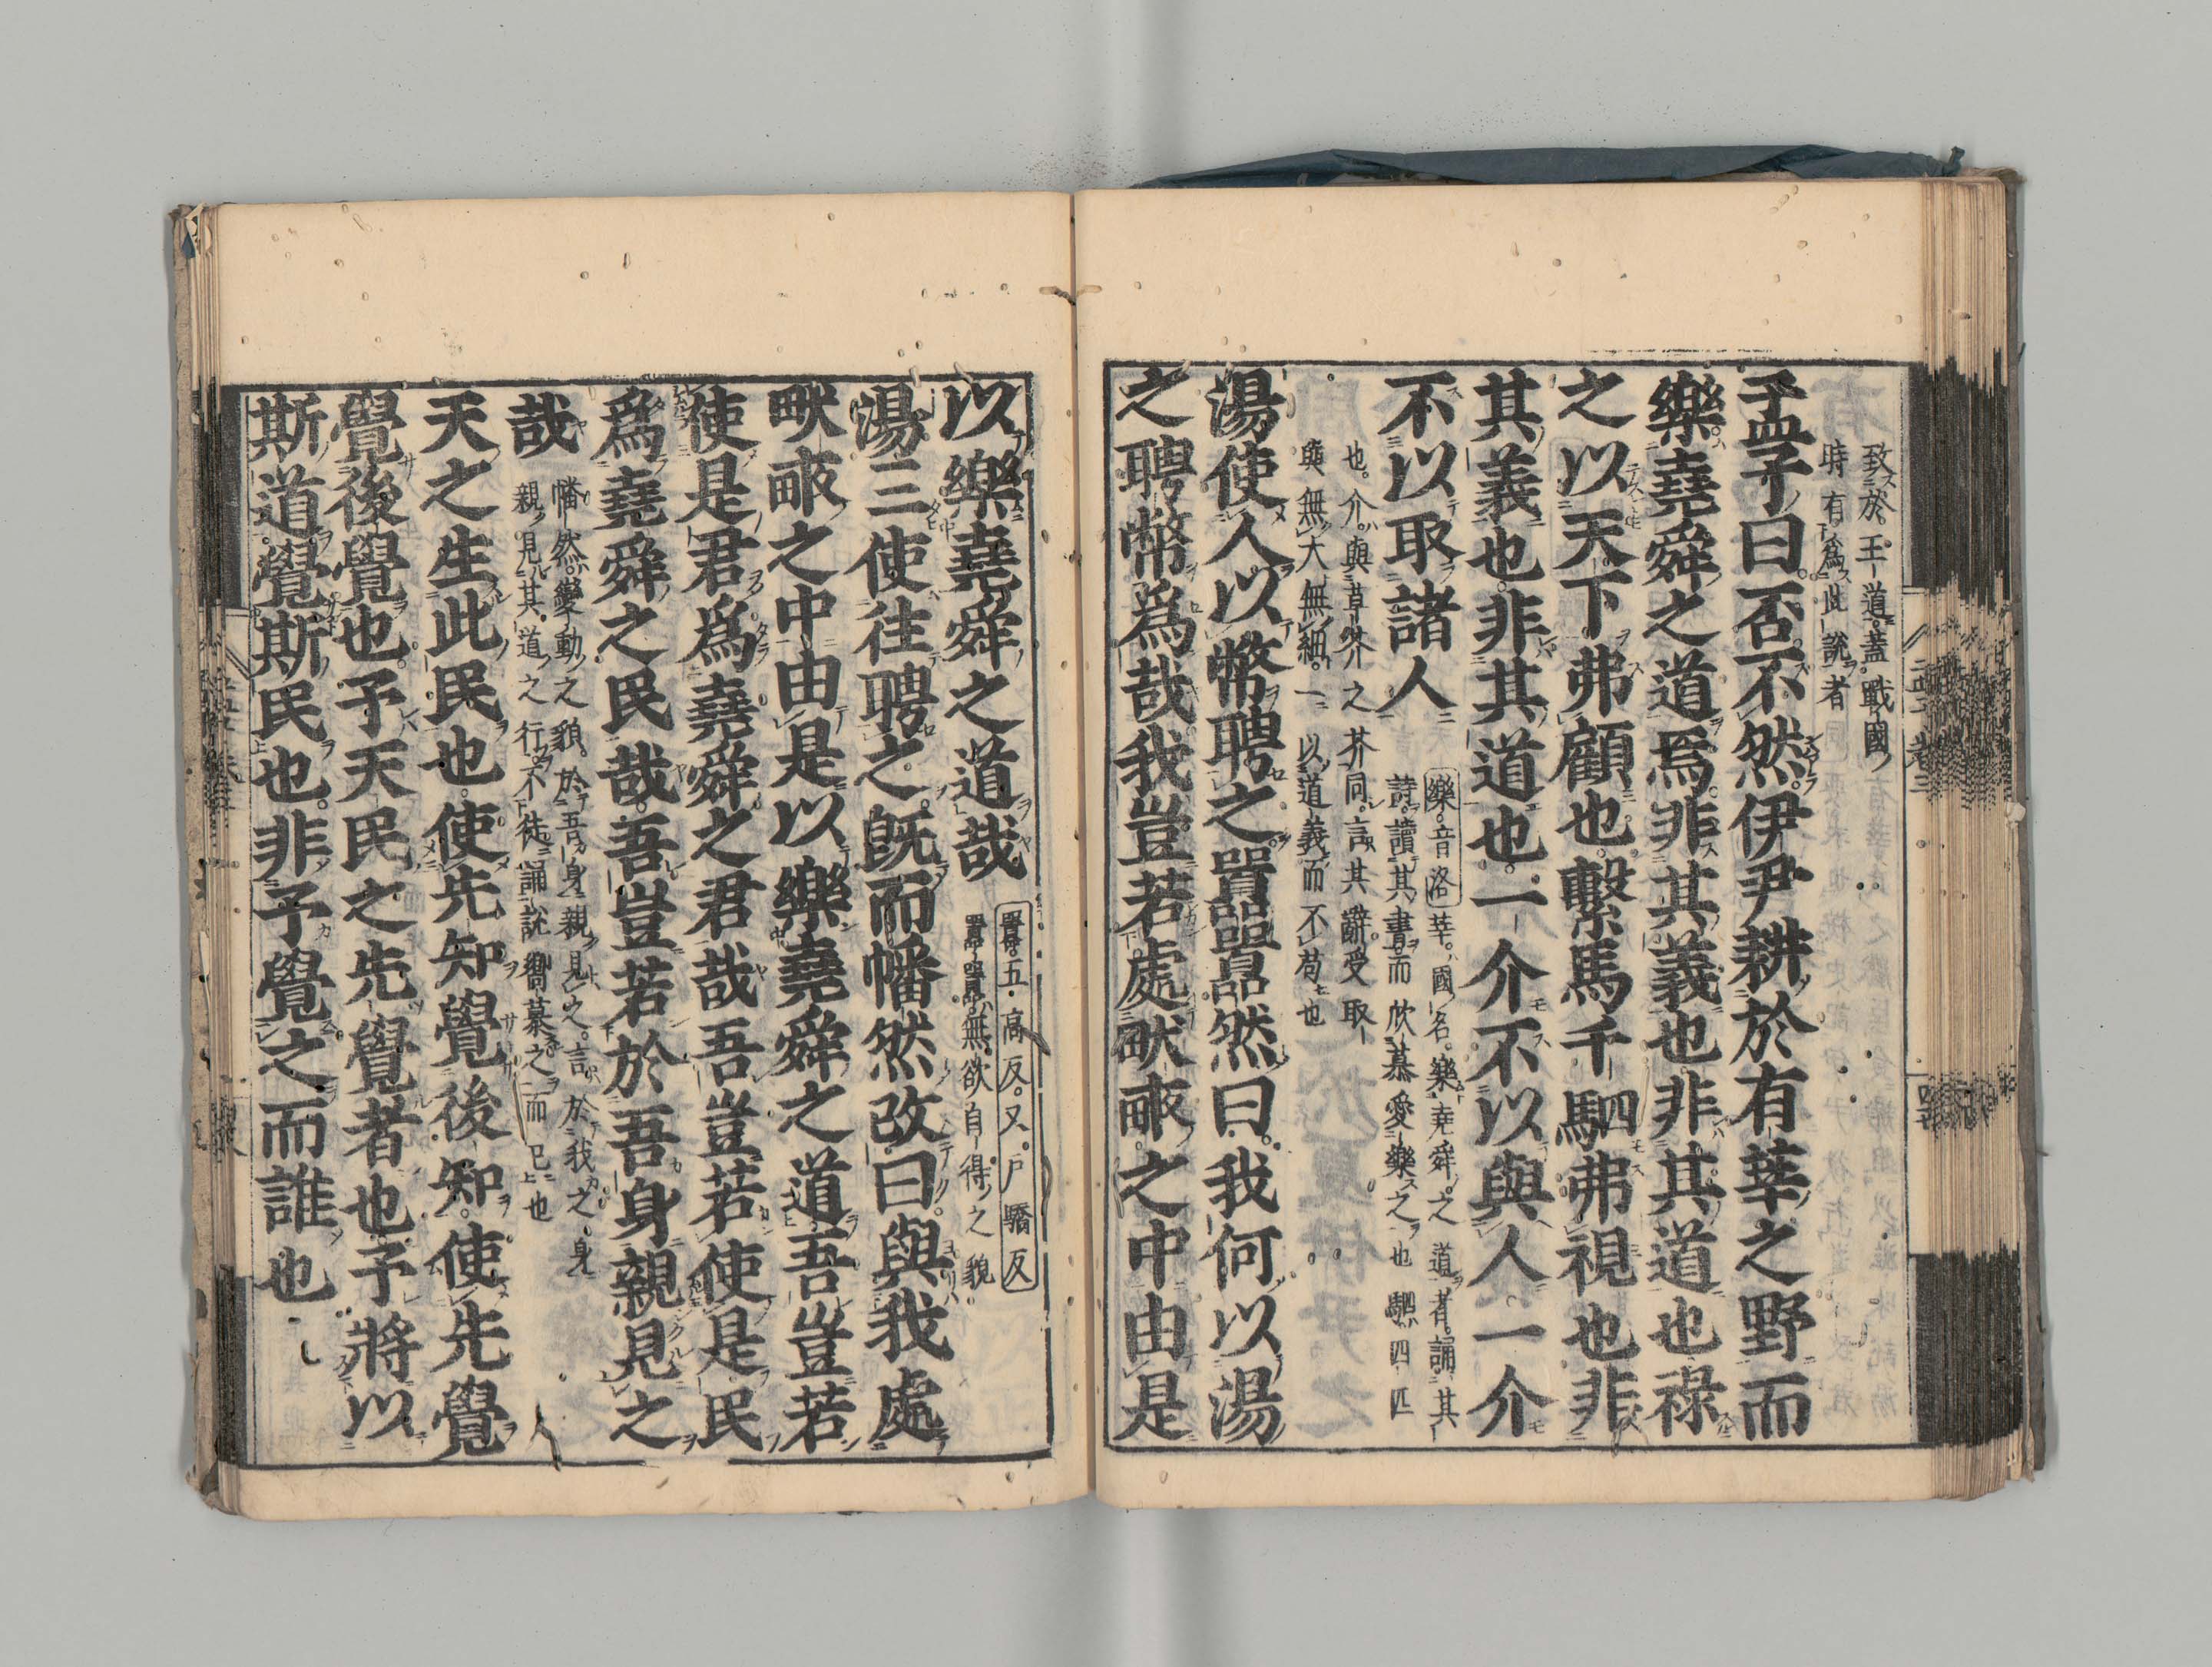 致於王道蓋戰國
時有爲此説者
孟子曰否不然伊尹耕於有莘之野而
樂堯舜之道焉非其義也非其道也祿
之以天下弗顧也繫馬千駟弗視也非
其義也非其道也一介不以與人一介
不以取諸人
樂音洛莘國名樂堯舜之道者誦其
詩讀其書而欣慕愛樂之也駟四匹
也介與草芥之芥同言其辭受取
與無大無細一以道義而不苟也
湯使人以幣聘之囂囂然曰我何以湯
之聘幣爲哉我豈若處畎畝之中由是
以樂堯舜之道哉
囂五高反又戶驕反
囂囂無欲自得之貌
湯三使往聘之旣而幡然改曰與我處
畎畝之中由是以樂堯舜之道吾豈若
使是君爲堯舜之君哉吾豈若使是民
爲堯舜之民哉吾豈若於吾身親見之
哉
幡然變動之貌於吾身親見之言於我之身
親見其道之行不徒誦説嚮慕之而已也
天之生此民也使先知覺後知使先覺
覺後覺也予天民之先覺者也予將以
斯道覺斯民也非予覺之而誰也